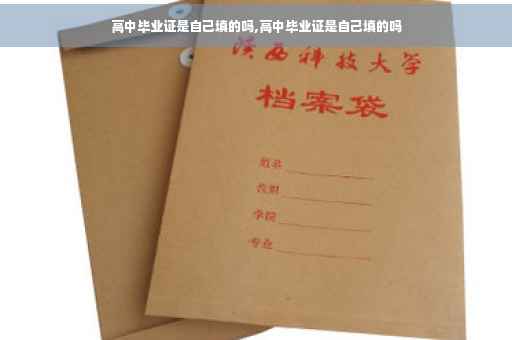 高中毕业证是自己填的吗,高中毕业证是自己填的吗
陕西科技大学
档案袋
姓名
学院
专业